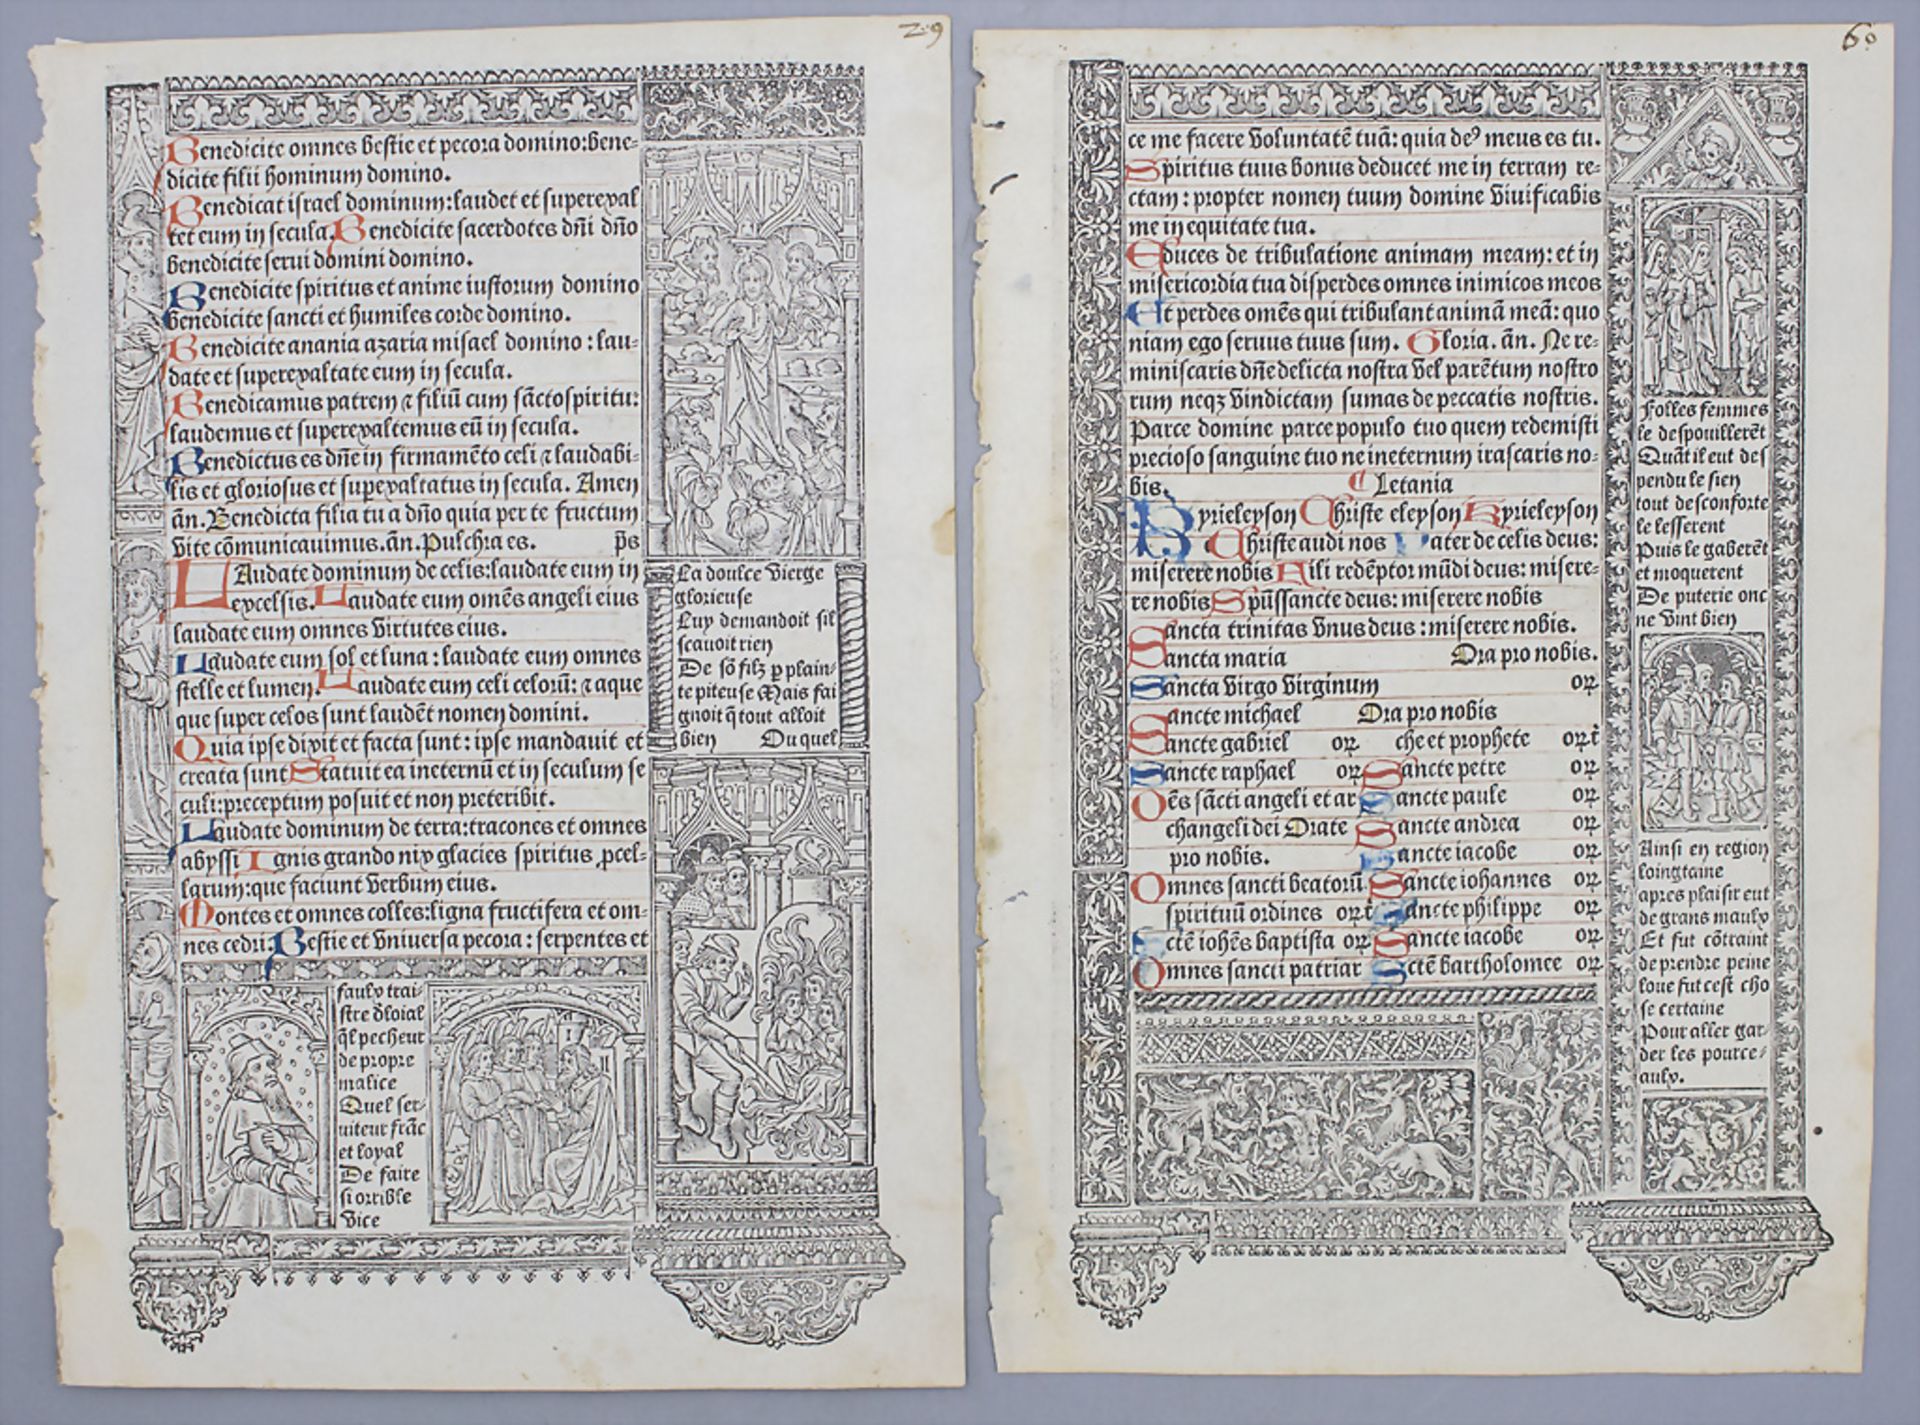 29
Benedicite omnes bestie et pecora domino: bene-
dicite filii hominum domino.
Benedicat israel dominum: laudet et superexal
tet eum in secula. Benedicite sacerdotes dñi dño
benedicite serui domini domino.
Benedicite spiritus et anime iustorum domino
benedicite sancti et humiles corde domino.
Benedicite anania azaria misael domino: lau-
date et superexaltate eum in secula.
Benedicamus patrem ⁊ filiũ cum sãcto spiritu:
laudemus et superexaltemus eũ in secula.
Benedictus es dñe in firmamẽto celi ⁊ laudabi-
lis et gloriosus et superexaltatus in secula. Amen
ãn. Benedicta filia tu a dño quia per te fructum
vite cõmunicauimus. ãn. Pulchra es. p̃s
LAudate dominum de celis: laudate eum in
excelsis. Laudate eum omẽs angeli eius
laudate eum omnes virtutes eius.
Laudate eum sol et luna: laudate eum omnes
stelle et lumen. Laudate eum celi celorũ: ⁊ aque
que super celos sunt laudẽt nomen domini.
Quia ipse dixit et facta sunt: ipse mandauit et
creata sunt Statuit ea in eternũ et in seculum se
culi: preceptum posuit et non preteribit.
Laudate dominum de terra: tracones et omnes
abyssi Ignis grando nix glacies spiritus ꝓcel-
larum: que faciunt verbum eius.
Montes et omnes colles: ligna fructifera et om-
nes cedri: Bestie et vniuersa pecora: serpentes et
La doulce vierge
glorieuse
Luy demandoit sil
scauoit rien
De sõ filz ꝑ plain-
te piteuse Mais fai
gnoit q̃ tout alloit
bien Du quel
faulx trai-
stre dloial
q̃l pecheur
de propre
malice
Quel ser-
uiteur frãc
et loyal
De faire
si orrible
vice
60
ce me facere voluntatẽ tuã: quia deꝰ meus es tu.
Spiritus tuus bonus deducet me in terram re-
ctam: propter nomen tuum domine viuificabis
me in equitate tua.
Educes de tribulatione animam meam: et in
misericordia tua disperdes omnes inimicos meos
Et perdes omẽs qui tribulant animã meã: quo
niam ego seruus tuus sum. Gloria. ãn. Ne re-
miniscaris dñe delicta nostra vel parẽtum nostro
rum neqꝫ vindictam sumas de peccatis nostris.
Parce domine parce populo tuo quem redemisti
precioso sanguine tuo ne in eternum irascaris no-
bis. ¶ Letania
Kyrieleyson Christe eleyson Kyrieleyson
Christe audi nos Pater de celis deus:
miserere nobis Fili redẽptor mũdi deus: misere-
re nobis Spũssancte deus: miserere nobis
Sancta trinitas vnus deus: miserere nobis.
Sancta maria Ora pro nobis.
Sancta virgo virginum oꝝ
Sancte michael Ora pro nobis
Sancte gabriel oꝝ
Sancte raphael oꝝ
Oẽs sãcti angeli et ar
changeli dei Orate
pro nobis.
Omnes sancti beatorũ
spirituũ ordines oꝝt̃
Sctẽ iohẽs baptista oꝝ
Omnes sancti patriar
che et prophete oꝝt̃
Sancte petre oꝝ
Sancte paule oꝝ
Sancte andrea oꝝ
Sancte iacobe oꝝ
Sancte iohannes oꝝ
Sancte philippe oꝝ
Sancte iacobe oꝝ
Sctẽ bartholomee oꝝ
Folles femmes
le despouillerẽt
Quãt il eut des
pendu le sien
tout desconforte
le lesserent
Puis le gaberẽt
et moquerent
De puterie onc
ne vint bien
Ainsi en region
loingtaine
apres plaisir eut
de grans maulx
Et fut cõtraint
de prendre peine
loue fut cest cho
se certaine
Pour aller gar-
der les pource-
aulx.